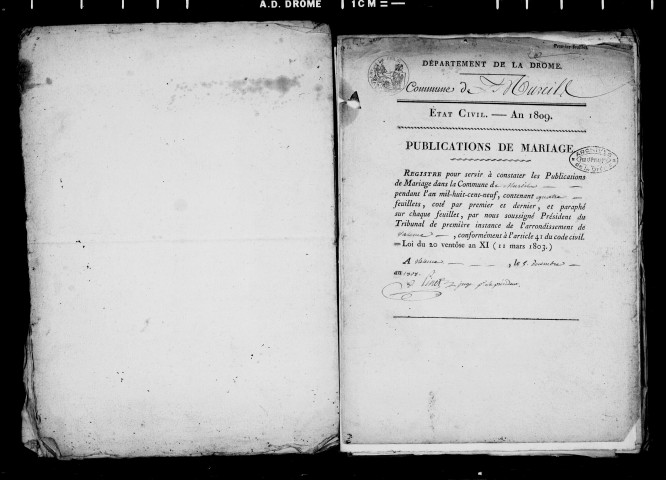 A.D. DROME 1CM=
Premier feuillet.
DÉPARTEMENT DE LA DROME.
Commune de
ÉTAT CIVIL. — AN 1809.
PUBLICATIONS DE MARIAGE.
REGISTRE pour servir à constater les Publications
de Mariage dans la Commune de
pendant l'an mil-huit-cent-neuf, contenant quatre
feuillets, coté par premier et dernier, et paraphé
sur chaque feuillet, par nous soussigné Président du
Tribunal de première instance de l'arrondissement de
Valence, conformément à l'article 41 du code civil.
= Loi du 20 ventôse an XI (11 mars 1803.)
A Valence, le
an 1808.
2